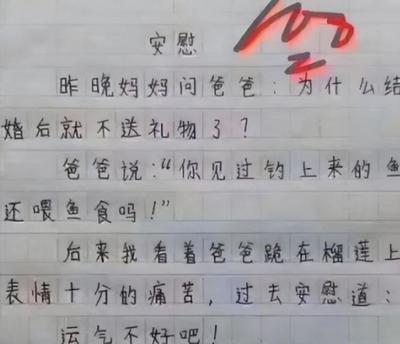 安慰
100
昨晚妈妈问爸爸:为什么结
婚后就不送礼物了?
爸爸说:“你见过钓上来的鱼
还喂鱼食吗!”
后来我看着爸爸跪在榴莲上
表情十分的痛苦,过去安慰道:
运气不好吧!